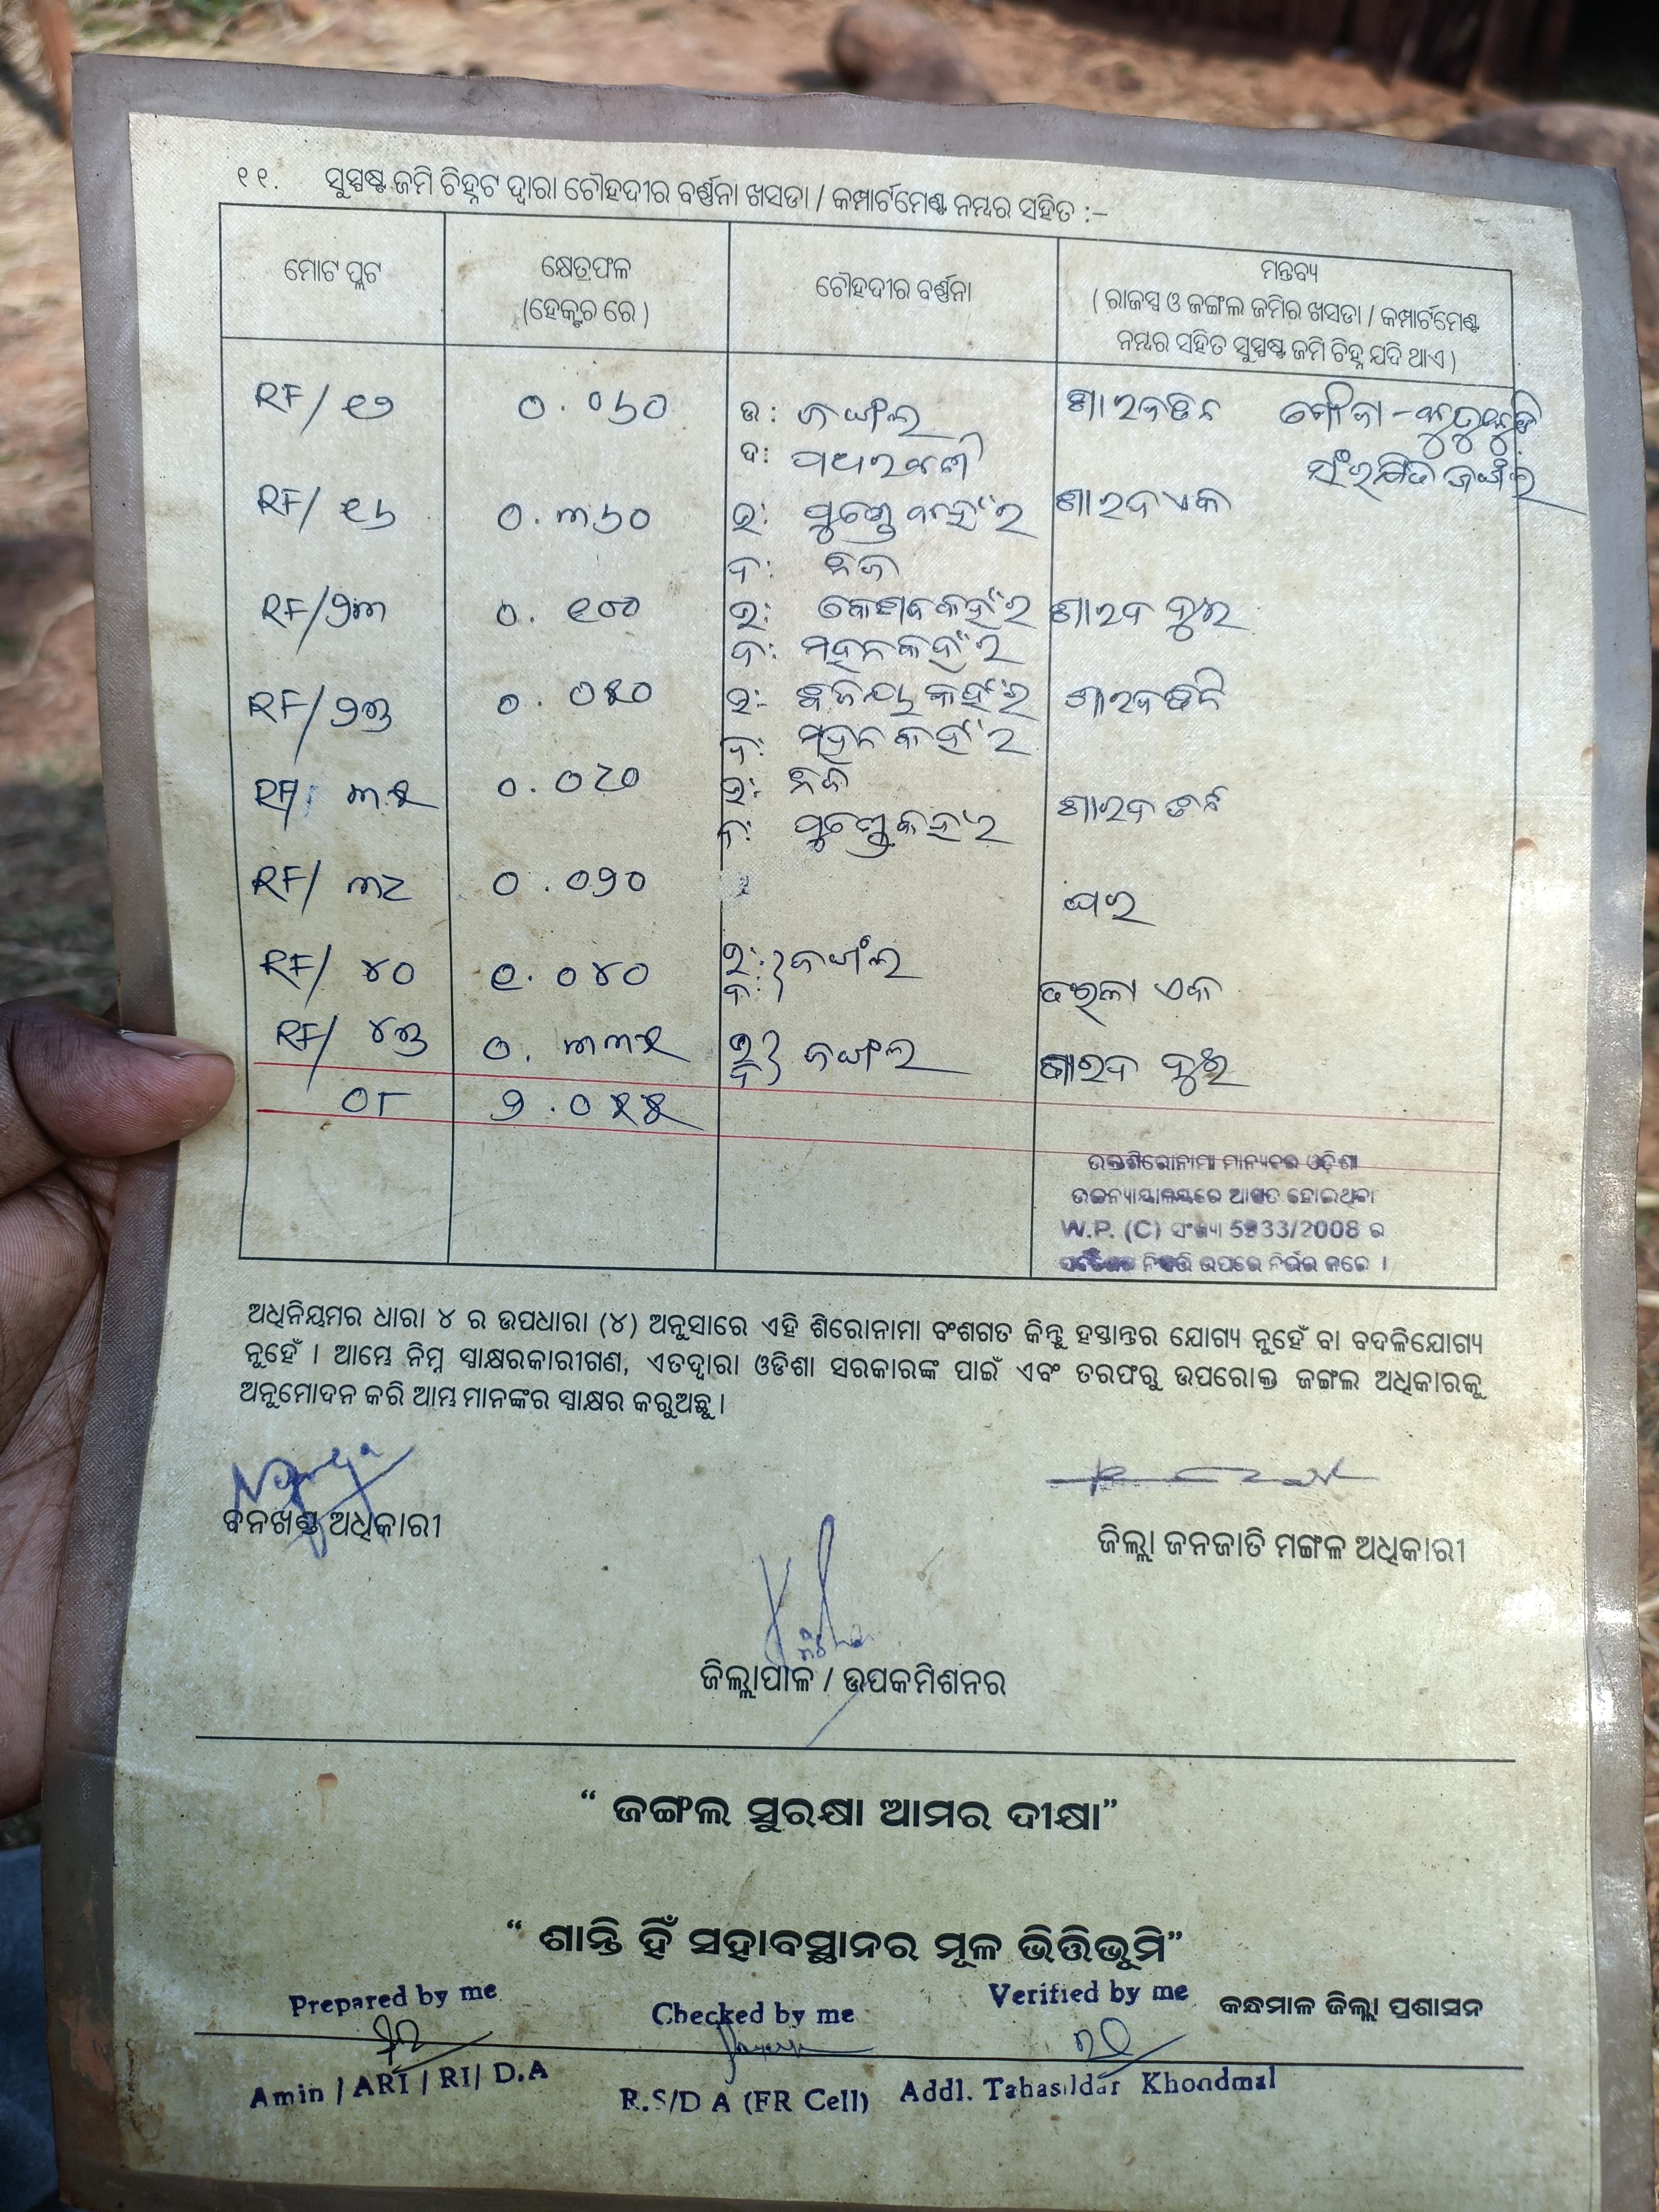 ୧୧. ସୁସ୍ପଷ୍ଟ ଜମି ଚିହ୍ନଟ ଦ୍ଵାରା ଚୌହଦୀର ବର୍ଣ୍ଣନା ଖସଡା / କମ୍ପାର୍ଟମେଣ୍ଟ ନମ୍ବର ସହିତ :–
ମୋଟ ପ୍ଲଟ
କ୍ଷେତ୍ରଫଳ
(ହେକ୍ଟର ରେ )
ଚୌହଦୀର ବର୍ଣ୍ଣନା
ମନ୍ତବ୍ୟ
( ରାଜସ୍ଵ ଓ ଜଙ୍ଗଲ ଜମିର ଖସଡା / କମ୍ପାର୍ଟମେଣ୍ଟ
ନମ୍ବର ସହିତ ସୁସ୍ପଷ୍ଟ ଜମି ଚିହ୍ନ ଯଦି ଥାଏ )
RF/ ୧୬ ୦.୦୬୦ ଉ: ଜଙ୍ଗଲ ଶାରଦତିନ ମୌଜା -
ଦ: ସଂରକ୍ଷିତ ଜଙ୍ଗଲ
RF/ ୧୬ ୦.୩୬୦ ଉ: କହଁର ଶାରଦଏକ
ଦ: ନିଜ
RF/୨୩ ୦.୧୦୦ ଉ: କେଶବ କହଁର ଶାରଦ ଦୁଇ
ଦ: ମହନ କହଁର
RF/୨୭ ୦.୦୫୦ ଉ:- କହଁର ଶାରଦତିନି
ଦ: ମହନ କହଁର
RF/ ୩୫ ୦.୦୮୦ ଉ: ନିଜ ଶାରଦ ତିନି
ଦ: କହଁର
RF/ ୩୮ ୦.୦୨୦ ଘର
RF/ ୪୦ ୧.୦୪୦ ଉ: ଦ: ଜଙ୍ଗଲ ଏକ
RF/ ୪୭ ୦.୩୩୫ ଉ ଦ ଜଙ୍ଗଲ ଶାରଦ ଦୁଇ
୦୮ ୨.୦୫୫
ଉକ୍ତ ଶିରୋନାମା ମାନ୍ୟବର ଓଡ଼ିଶା
ଉଚ୍ଚନ୍ୟାୟାଳୟରେ ଆଗତ ହୋଇଥିବା
W.P. (C) ସଂଖ୍ୟା 5933/2008 ର
ଉପରେ ନିର୍ଭର କରେ ।
ଅଧିନିୟମର ଧାରା ୪ ର ଉପଧାରା (୪) ଅନୁସାରେ ଏହି ଶିରୋନାମା ବଂଶଗତ କିନ୍ତୁ ହସ୍ତାନ୍ତର ଯୋଗ୍ୟ ନୁହେଁ ବା ବଦଳିଯୋଗ୍ୟ
ନୁହେଁ । ଆମ୍ଭେ ନିମ୍ନ ସ୍ଵାକ୍ଷରକାରୀଗଣ, ଏତଦ୍ଵାରା ଓଡିଶା ସରକାରଙ୍କ ପାଇଁ ଏବଂ ତରଫରୁ ଉପରୋକ୍ତ ଜଙ୍ଗଲ ଅଧିକାରକୁ
ଅନୁମୋଦନ କରି ଆମ୍ଭ ମାନଙ୍କର ସ୍ଵାକ୍ଷର କରୁଅଛୁ ।
ବନଖଣ୍ଡ ଅଧିକାରୀ
ଜିଲ୍ଲା ଜନଜାତି ମଙ୍ଗଳ ଅଧିକାରୀ
ଜିଲ୍ଲାପାଳ / ଉପକମିଶନର
“ ଜଙ୍ଗଲ ସୁରକ୍ଷା ଆମର ଦୀକ୍ଷା”
“ ଶାନ୍ତି ହିଁ ସହାବସ୍ଥାନର ମୂଳ ଭିତ୍ତିଭୂମି”
Prepared by me Checked by me Verified by me କନ୍ଧମାଳ ଜିଲ୍ଲା ପ୍ରଶାସନ
Amin / ARI / RI/ D.A R.S/D A (FR Cell) Addl. Tahasildar Khondmal